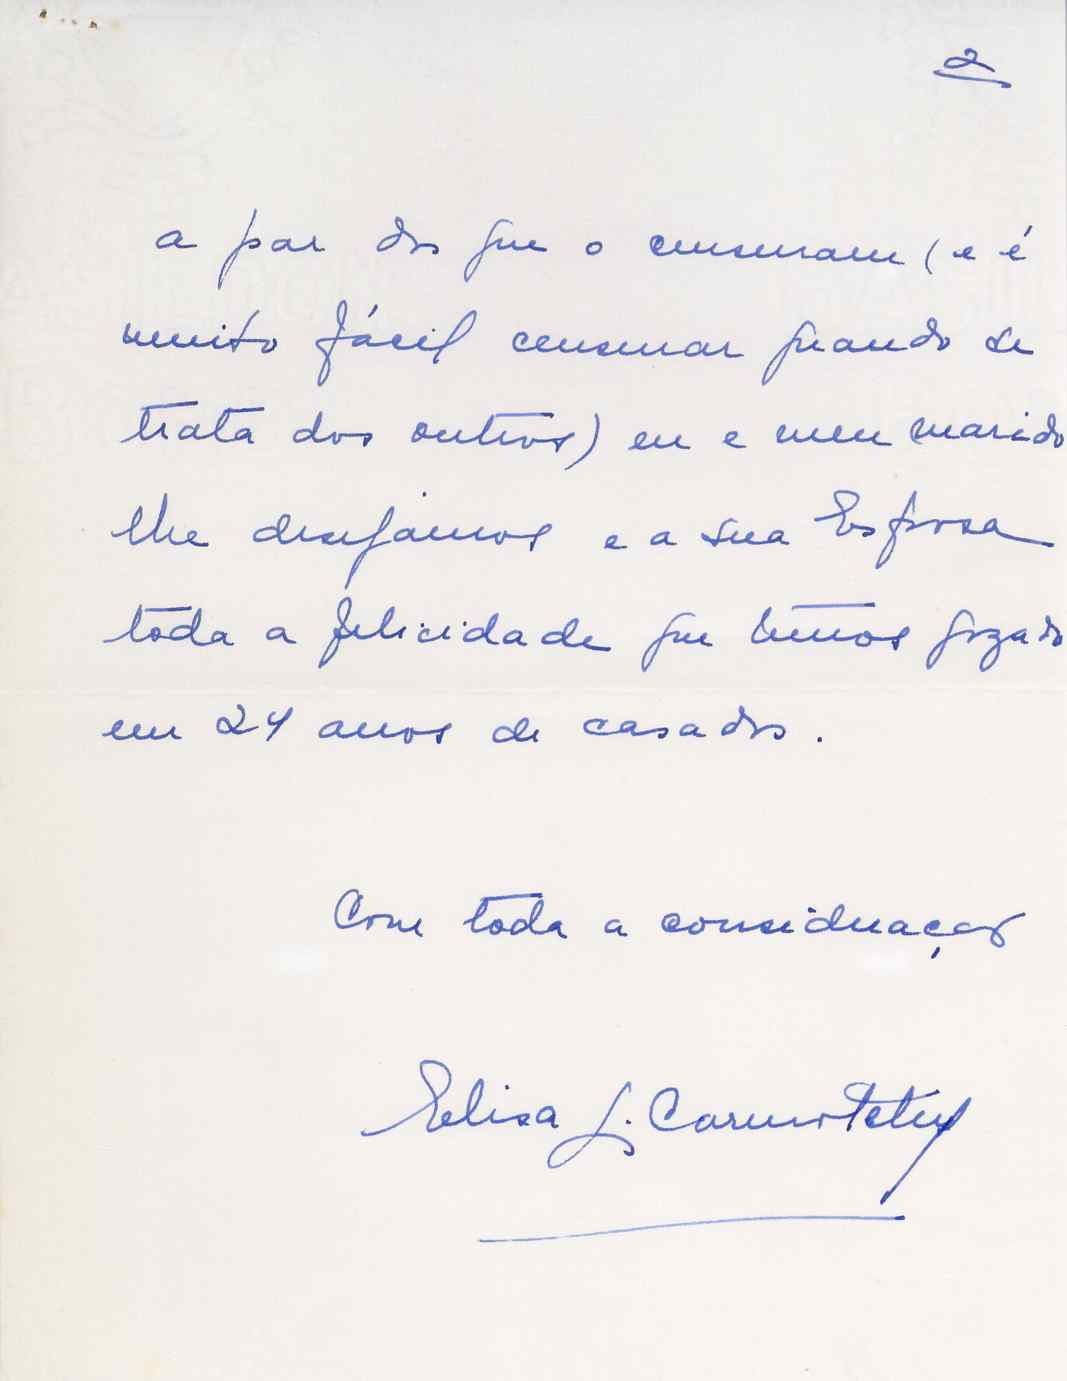 2
a par dos que o censuram (e é
muito fácil censurar quando se
trata dos outros) eu e meu marido
lhe desejamos e a sua Esposa
toda a felicidade que temos gozado
em 24 anos de casados.
Com toda a consideração
Elisa S.